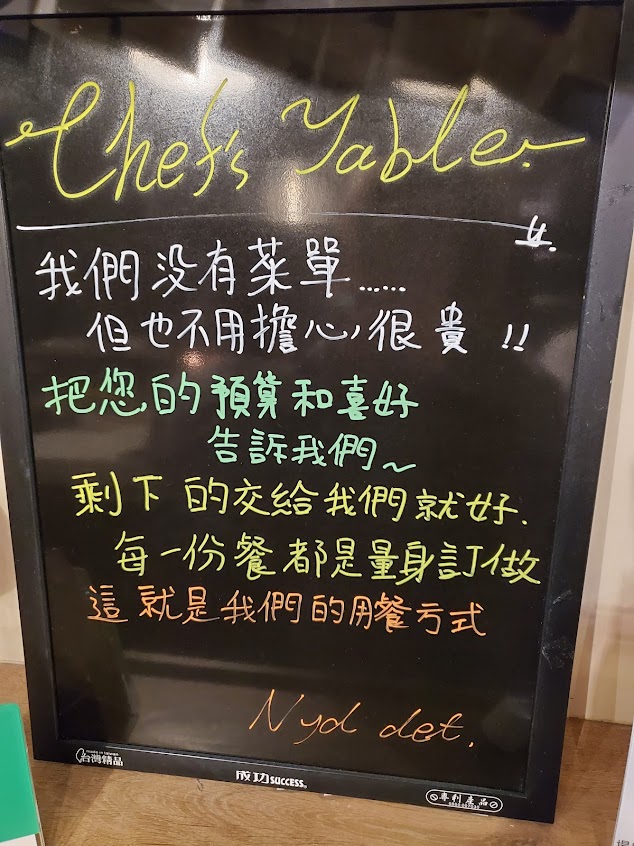 Chef's Table.
我們没有菜單......
但也不用擔心很貴!!
把您的預算和喜好
告訴我們~
剩下的交給我們就好.
每一份餐都是量身訂做
這就是我們的用餐方式
Nyd det.
MADE IN TAIWAN
台灣精品
成功SUCCESS®
專利產品